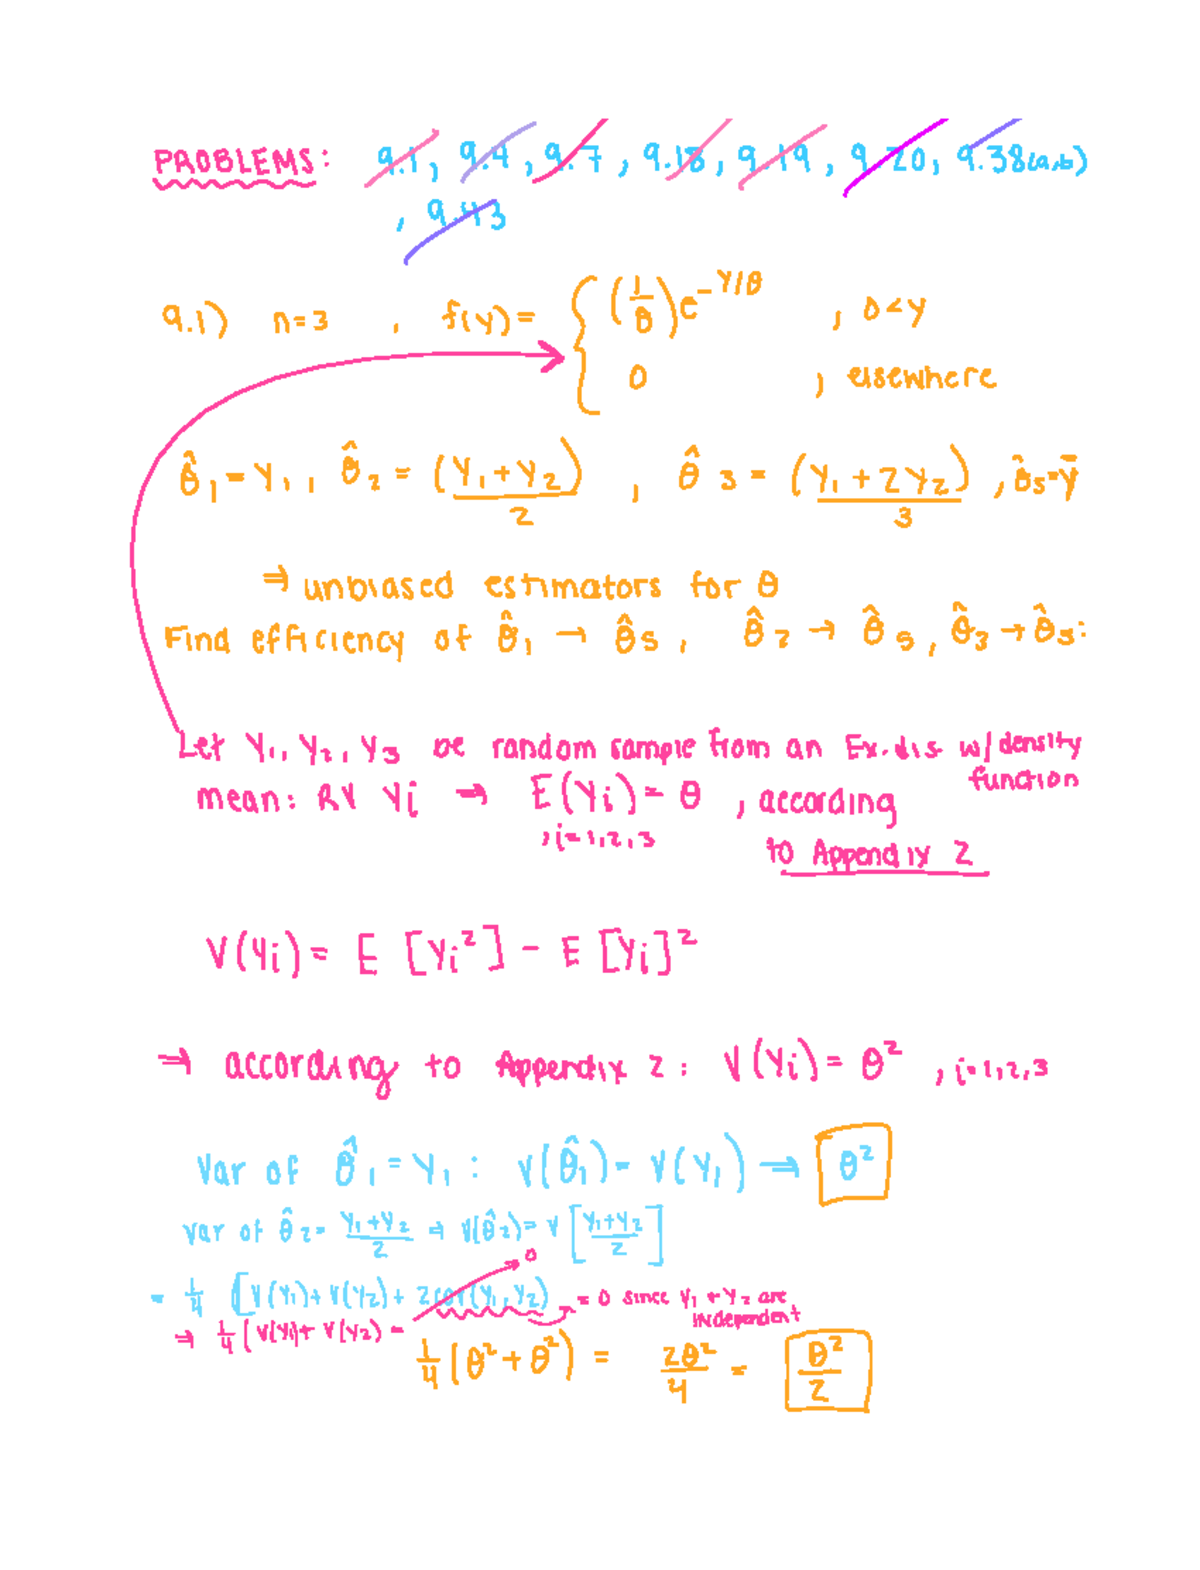 PROBLEMS: 9.1, 9.4, 9.7, 9.18, 9.19, 9.20, 9.38(a,b)
, 9.43
9.1) n=3 , f(y) = { (1/θ)e^(-Y/θ) , 0<y
0 , elsewhere
θ̂1 = Y1, θ̂2 = (Y1+Y2)/2 , θ̂3 = (Y1+2Y2)/3 , θ̂5=Ȳ
⇒ unbiased estimators for θ
Find efficiency of θ̂1 → θ̂5, θ̂2 → θ̂5, θ̂3 → θ̂5:
Let Y1, Y2, Y3 be random sample from an Ex. dis w/ density function
mean: RV Yi ⇒ E(Yi) = θ , according
, i=1,2,3
to Appendix 2
V(Yi) = E [Yi²] - E [Yi]²
⇒ according to Appendix 2: V(Yi) = θ² , i=1,2,3
Var of θ̂1 = Y1 : V(θ̂1) = V(Y1) ⇒ θ²
Var of θ̂2 = Y1+Y2/2 ⇒ V(θ̂2) = V [Y1+Y2/2]
= 1/4 [V(Y1) + V(Y2) + 2cov(Y1, Y2) → 0 = 0 since Y1 + Y2 are independent
⇒ 1/4 (V(Y1) + V(Y2) =
1/4 (θ² + θ²) = 2θ²/4 = θ²/2